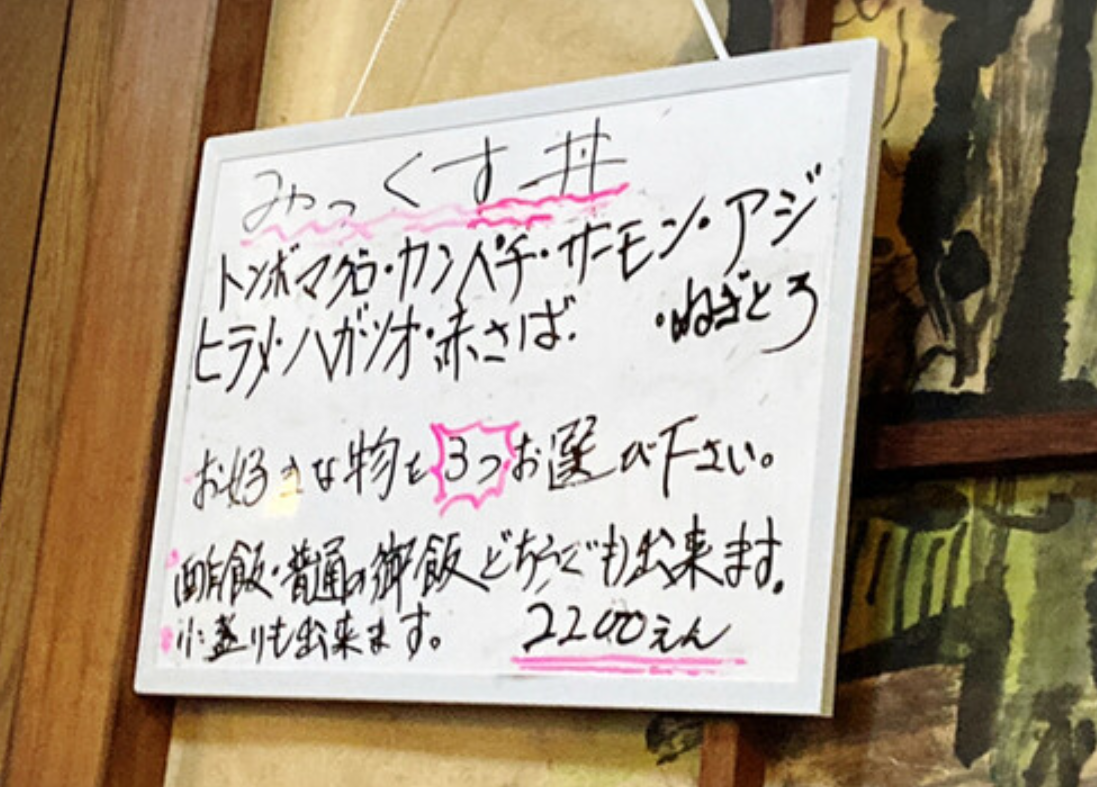 みっくす丼
トンボマグロ・カンパチ・サーモン・アジ
ヒラメ・ハガツオ・赤さば・ ・ねぎとろ
お好きな物を3つお選び下さい。
酢飯・普通の御飯どちらでも出来ます。
小盛りも出来ます。 2200えん